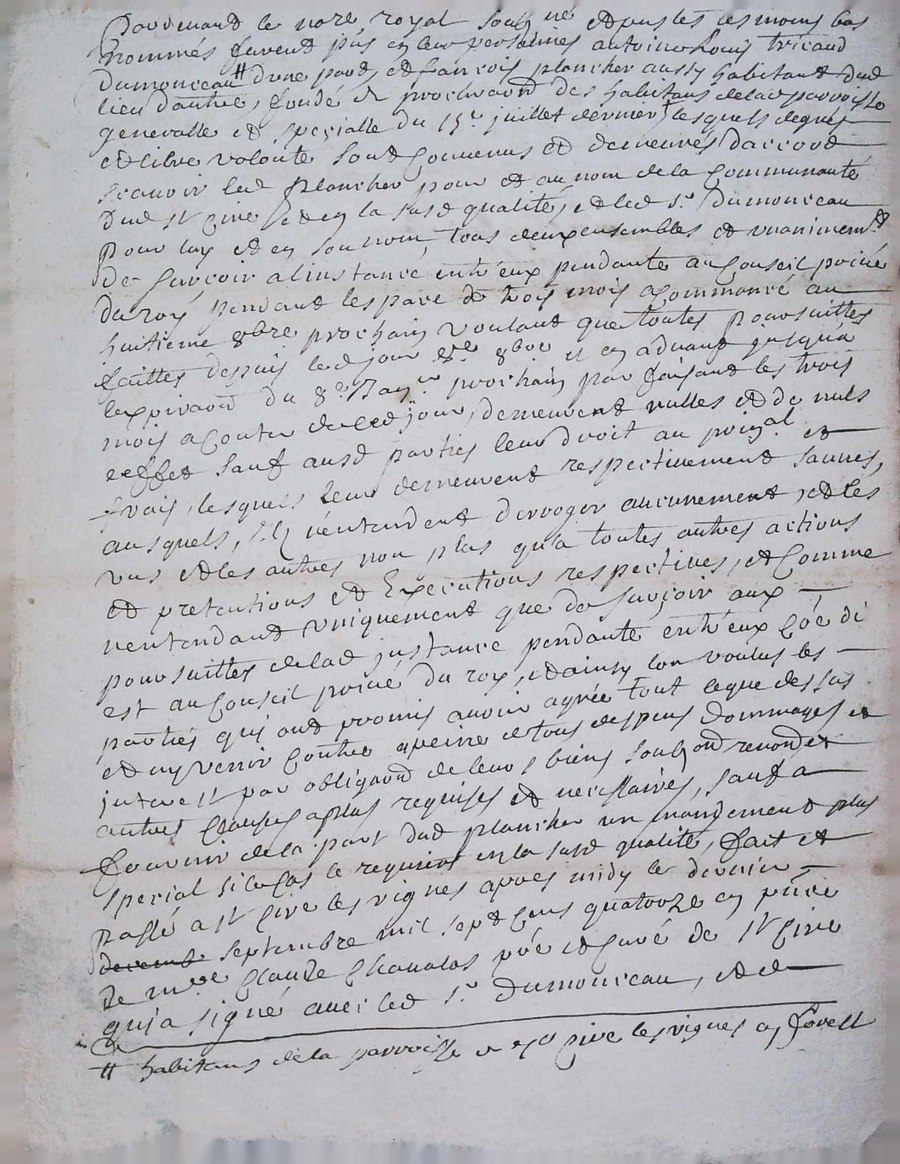 Pardevant le nore royal soubne et pnts les tesmoins bas
nommés furent pnts en leur personnes antoine Louis tricaud
Dumonceau # dune part, et françois plancher aussy habitant dud
lieu dautre, fondé de procuraon des habitans delad parroisse
generalle et specialle du 15e juillet dernier, lesquels de gré
et libre volonté sont convenus et demeurés daccord
scavoir led plancher pour et au nom de la Communauté
dud St Cire et en la susd qualité, et led sr. Dumonceau
pour luy et en son nom, tous deux ensembles et unanimemt
De surçoir a linstance entreux pendante au Conseil privé
du roy pendant lespace de trois mois a Commancé au
huitieme 8bre prochain voulant que toutes poursuittes
faittes depuis led jour 8e 8bre et en advant jusqua
lexpiraon du 8e prochain par faisant les trois
mois a Conter dud jour, demeurent nulles et de nuls
effet sauf ausd parties leur droit au prinal et
frais, lesquels leur demeurent respectivement sauves,
ausquels, ils nentendent deroger aucunement, et les
uns et les autres non plus qua toutes autres actions
et pretentions et Executions respectives, et Comme
nentendant uniquement que de surçoir aux
poursuittes delad instance pendante entreux Coe di
est au Conseil privé du roy, et ainsy lon voulus les
parties qui ont promis avoir agrée tout ceque dessus
et ny venir Contre apeine de tous despens dommages et
interest par obligaon de leurs biens soubzon renonder
autres Clauses aplus requises et necessaires, sauf a
fournir de la part dud plancher un mandement plus
special si le Cas le requiert en la susd qualité, fait et
passé a St Cire les vignes apres midy le dernier
decembre septembre mil sept Cens quatorze en pnce
de mre Claude Chavalas pre et Curé de St Cire
qui a signé avec led sr. Dumonceau, et de
# habitans de la parroisse de St Cire les vignes en forest